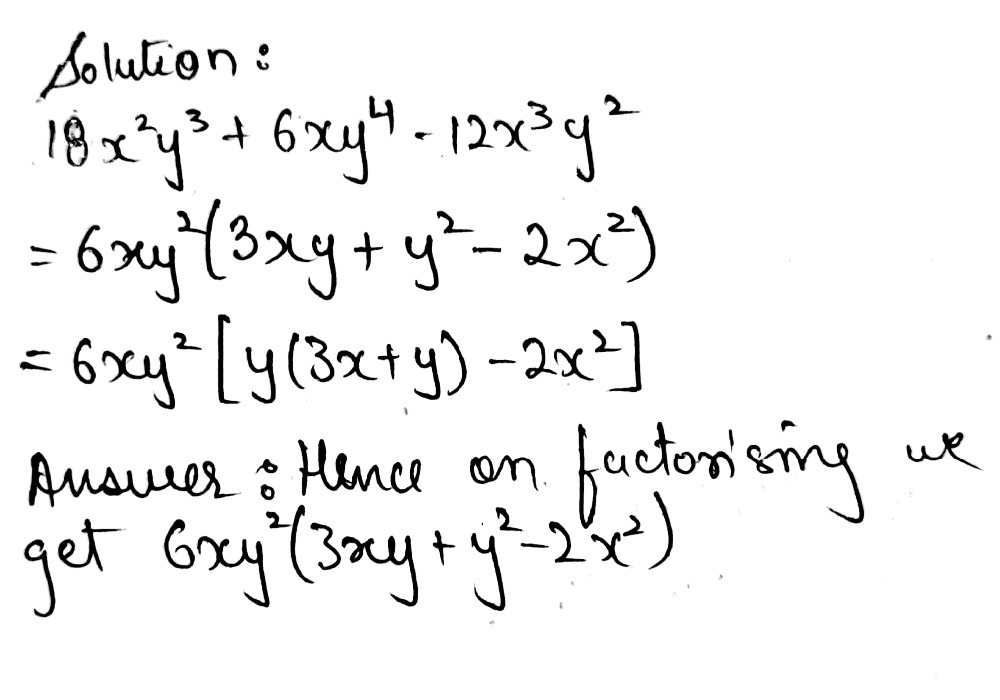 Solution:
18x²y³ + 6xy⁴ - 12x³y²
= 6xy²(3xy + y² - 2x²)
= 6xy² [y(3x+y) - 2x²]
Answer : Hence on factorising we
get 6xy²(3xy + y² - 2x²)